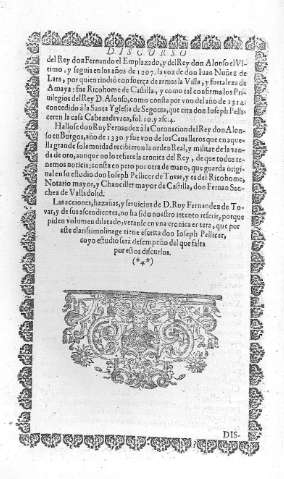 DISCURSO
del Rey don Fernando el Emplazado, y del Rey don Alonso el Vl-
timo, y seguia en los años de 1307. la voz de don Iuan Nuñez de
Lara, por quien rindiò con fuerça de armas la Villa, y fortaleza de
Amaya: fue Ricohome de Castilla, y como tal confirma los Pri-
uilegios del Rey D. Alonso, como consta por vno del año de 1314.
concedido à la Santa Yglesia de Segouia, que cita don Ioseph Pelli-
cer en la casa Cabeza de vaca, fol. 10. y
Hallose don Ruy Fernandez à la Coronacion del Rey don Alon-
so en Burgos, año de 1330. y fue vno de los Caualleros que en aque-
lla grande solenidad recibieron la orden Real, y militar de la van-
da de oro, aunque no lo refiere la cronica del Rey, de que todos te-
nemos noticia; consta empero por otra de mano, que guarda origi-
nal en su estudio don Ioseph Pellicer de Touar, y es del Ricohome,
Notario mayor, y Chanciller mayor de Castilla, don Fernan San-
chez de Valladolid.
Las acciones, hazañas, y seruicios de D. Ruy Fernandez de To-
uar, y de sus ascendientes, no ha sido nuestro intento referir, porque
piden volumen dilatado; veranse en vna cronica entera, que por
este clarissimo linage tiene escrita don Ioseph Pellicer,
cuyo estudio serà desempeño del que falta
por estos discursos.
(*+*)
DIS-